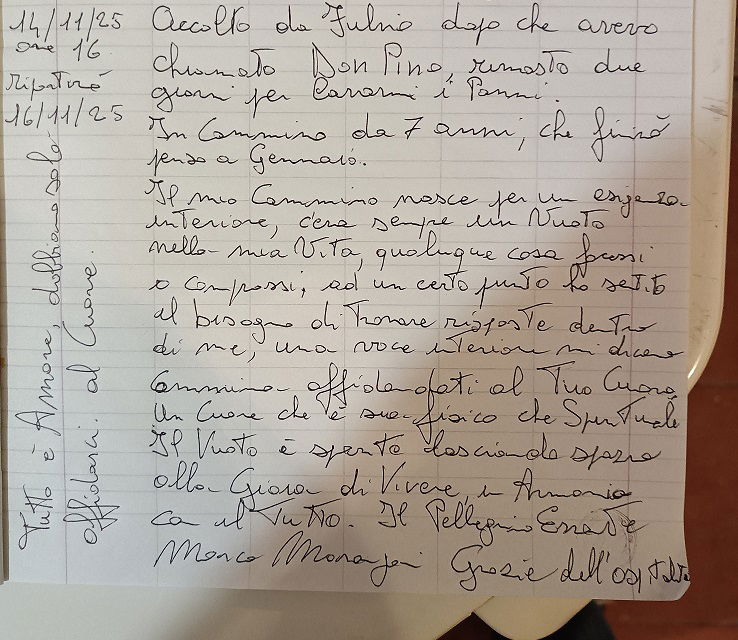 14/11/25
ore 16
ripartirò
16/11/25
Accolto da Fulvio dopo che avevo
chiamato Don Pino, rimasto due
giorni per Lavarmi i Panni.
In Cammino da 7 anni, che finirò
penso a Gennaio.
Il mio Cammino nasce per un esigenza
interiore, c'era sempre un Vuoto
nella mia Vita, qualunque cosa facessi
o comprassi, ad un certo punto ho setito
al bisogno di Trovare risposte dentro
di me, una voce interiore mi diceva
Cammina affidandoti al Tuo Cuore,
Un Cuore che è sua fisico che Spirituale
Il Vuoto è spento lasciando spazio
alla Gioia di Vivere, in Armonia
con il Tutto. Il Pellegrino Errante
Marco Grazie dell'ospitalità
Tutto è Amore, dobbiamo solo
affidarci al Cuore.